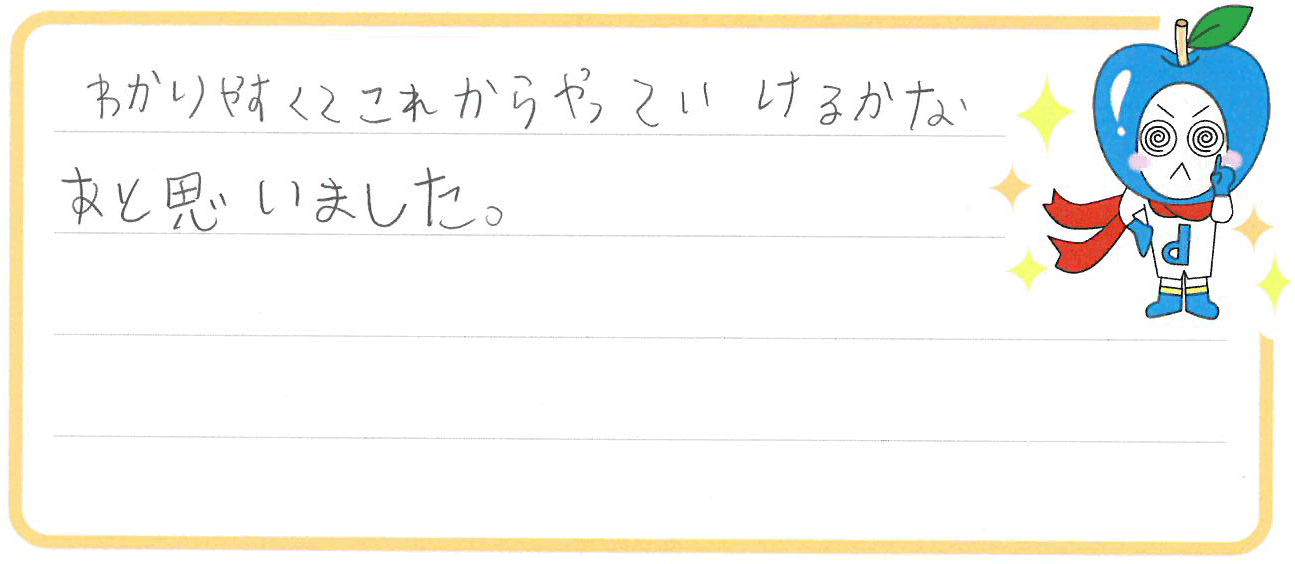 わかりやすくてこれからやっていけるかな
あと思いました。
d